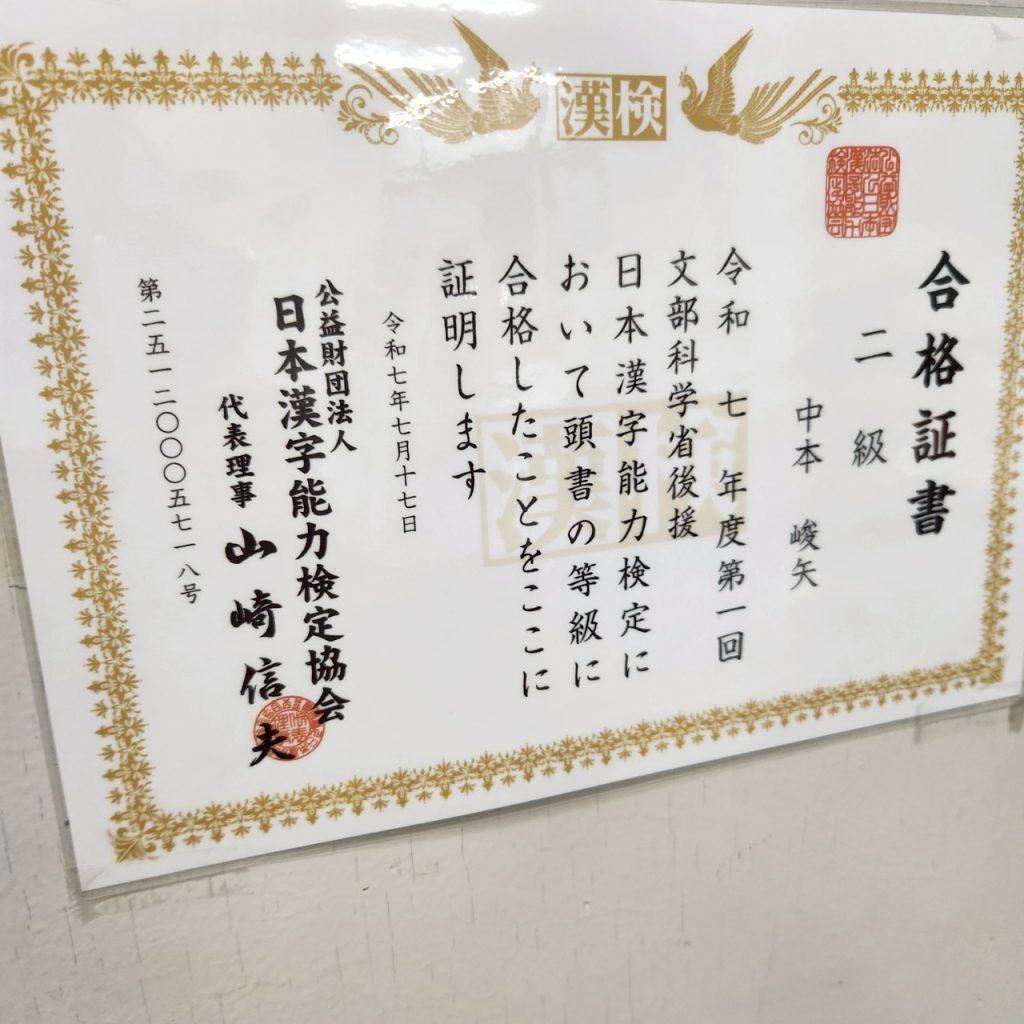 漢検
合格証書
二級
中本 峻矢
令和 七 年度第一回
文部科学省後援
日本漢字能力検定に
おいて頭書の等級に
合格したことをここに
証明します
令和七年七月十七日
公益財団法人
日本漢字能力検定協会
代表理事 山崎信夫
第二五一二〇〇〇五七一八号